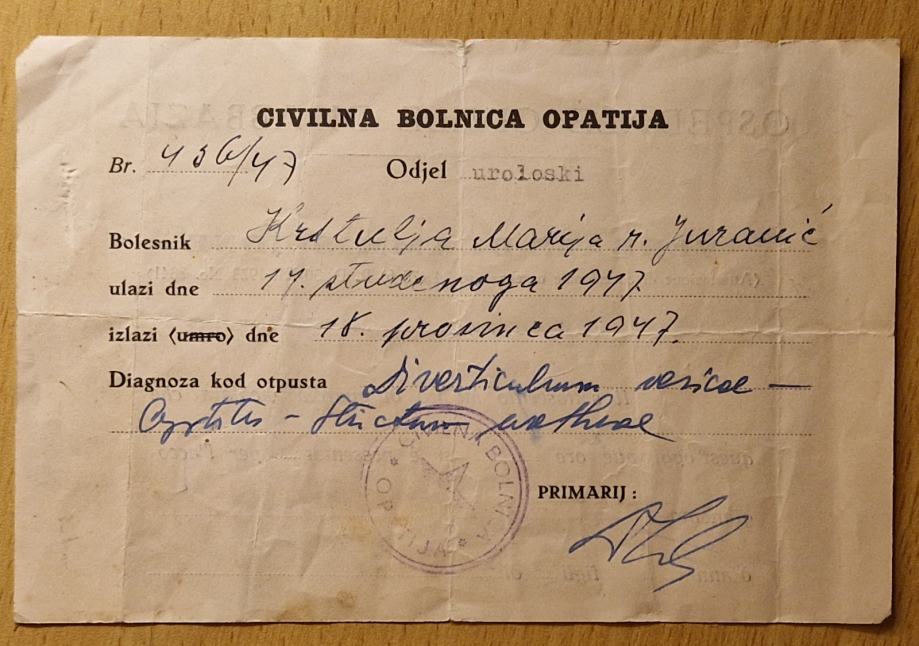 CIVILNA BOLNICA OPATIJA
Br. 436/47 Odjel uroloski
Bolesnik Krstulja Marija r. Juranić
ulazi dne 17. studenoga 1947
izlazi (umro) dne 18. prosinca 1947.
Diagnoza kod otpusta Diverticulum vesicae —
Cystitis - Strictura urethrae
CIVILNA BOLNICA * OPATIJA *
PRIMARIJ: